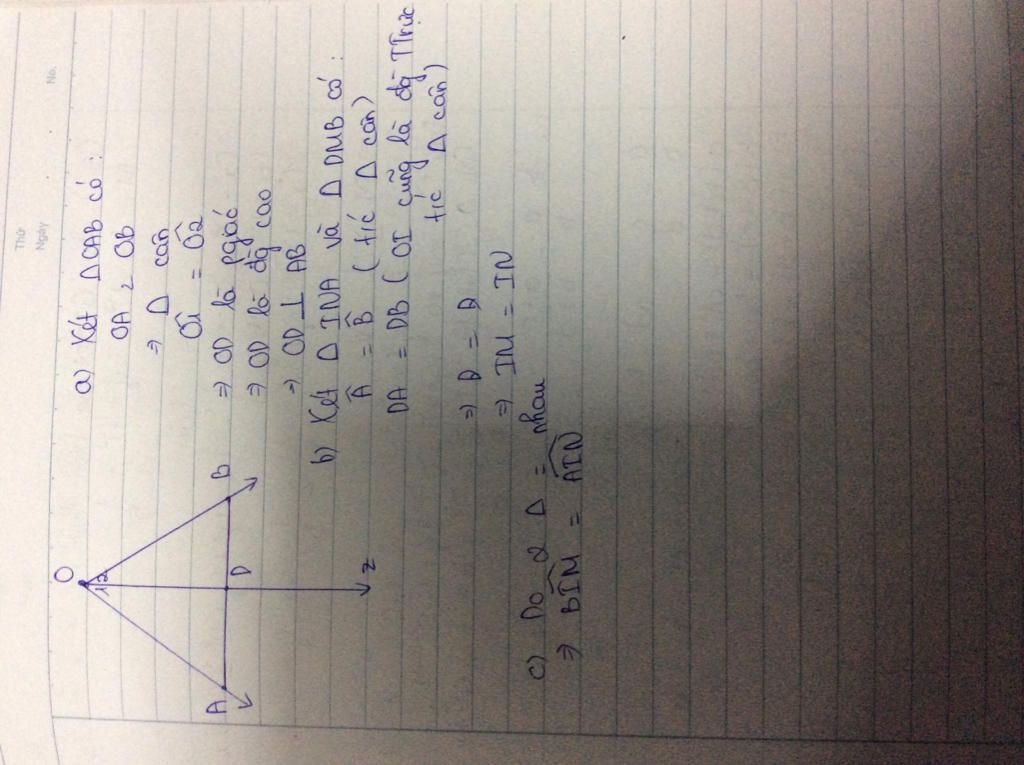 Thứ
Ngày
No.
O
12
A
D
B
z
a) Xét ΔOAB có:
OA = OB
⇒ Δ cân
Ô1 = Ô2
⇒ OD là pgiác
⇒ OD là đg cao
⇒ OD ⊥ AB
b) Xét Δ INA và Δ DMB có:
Â = B̂ (t/c Δ cân)
DA = DB (OI cũng là đg TTrực
t/c Δ cân)
⇒ Δ = Δ
⇒ IM = IN
c) Do 2 Δ = nhau
⇒ BIM = AIN